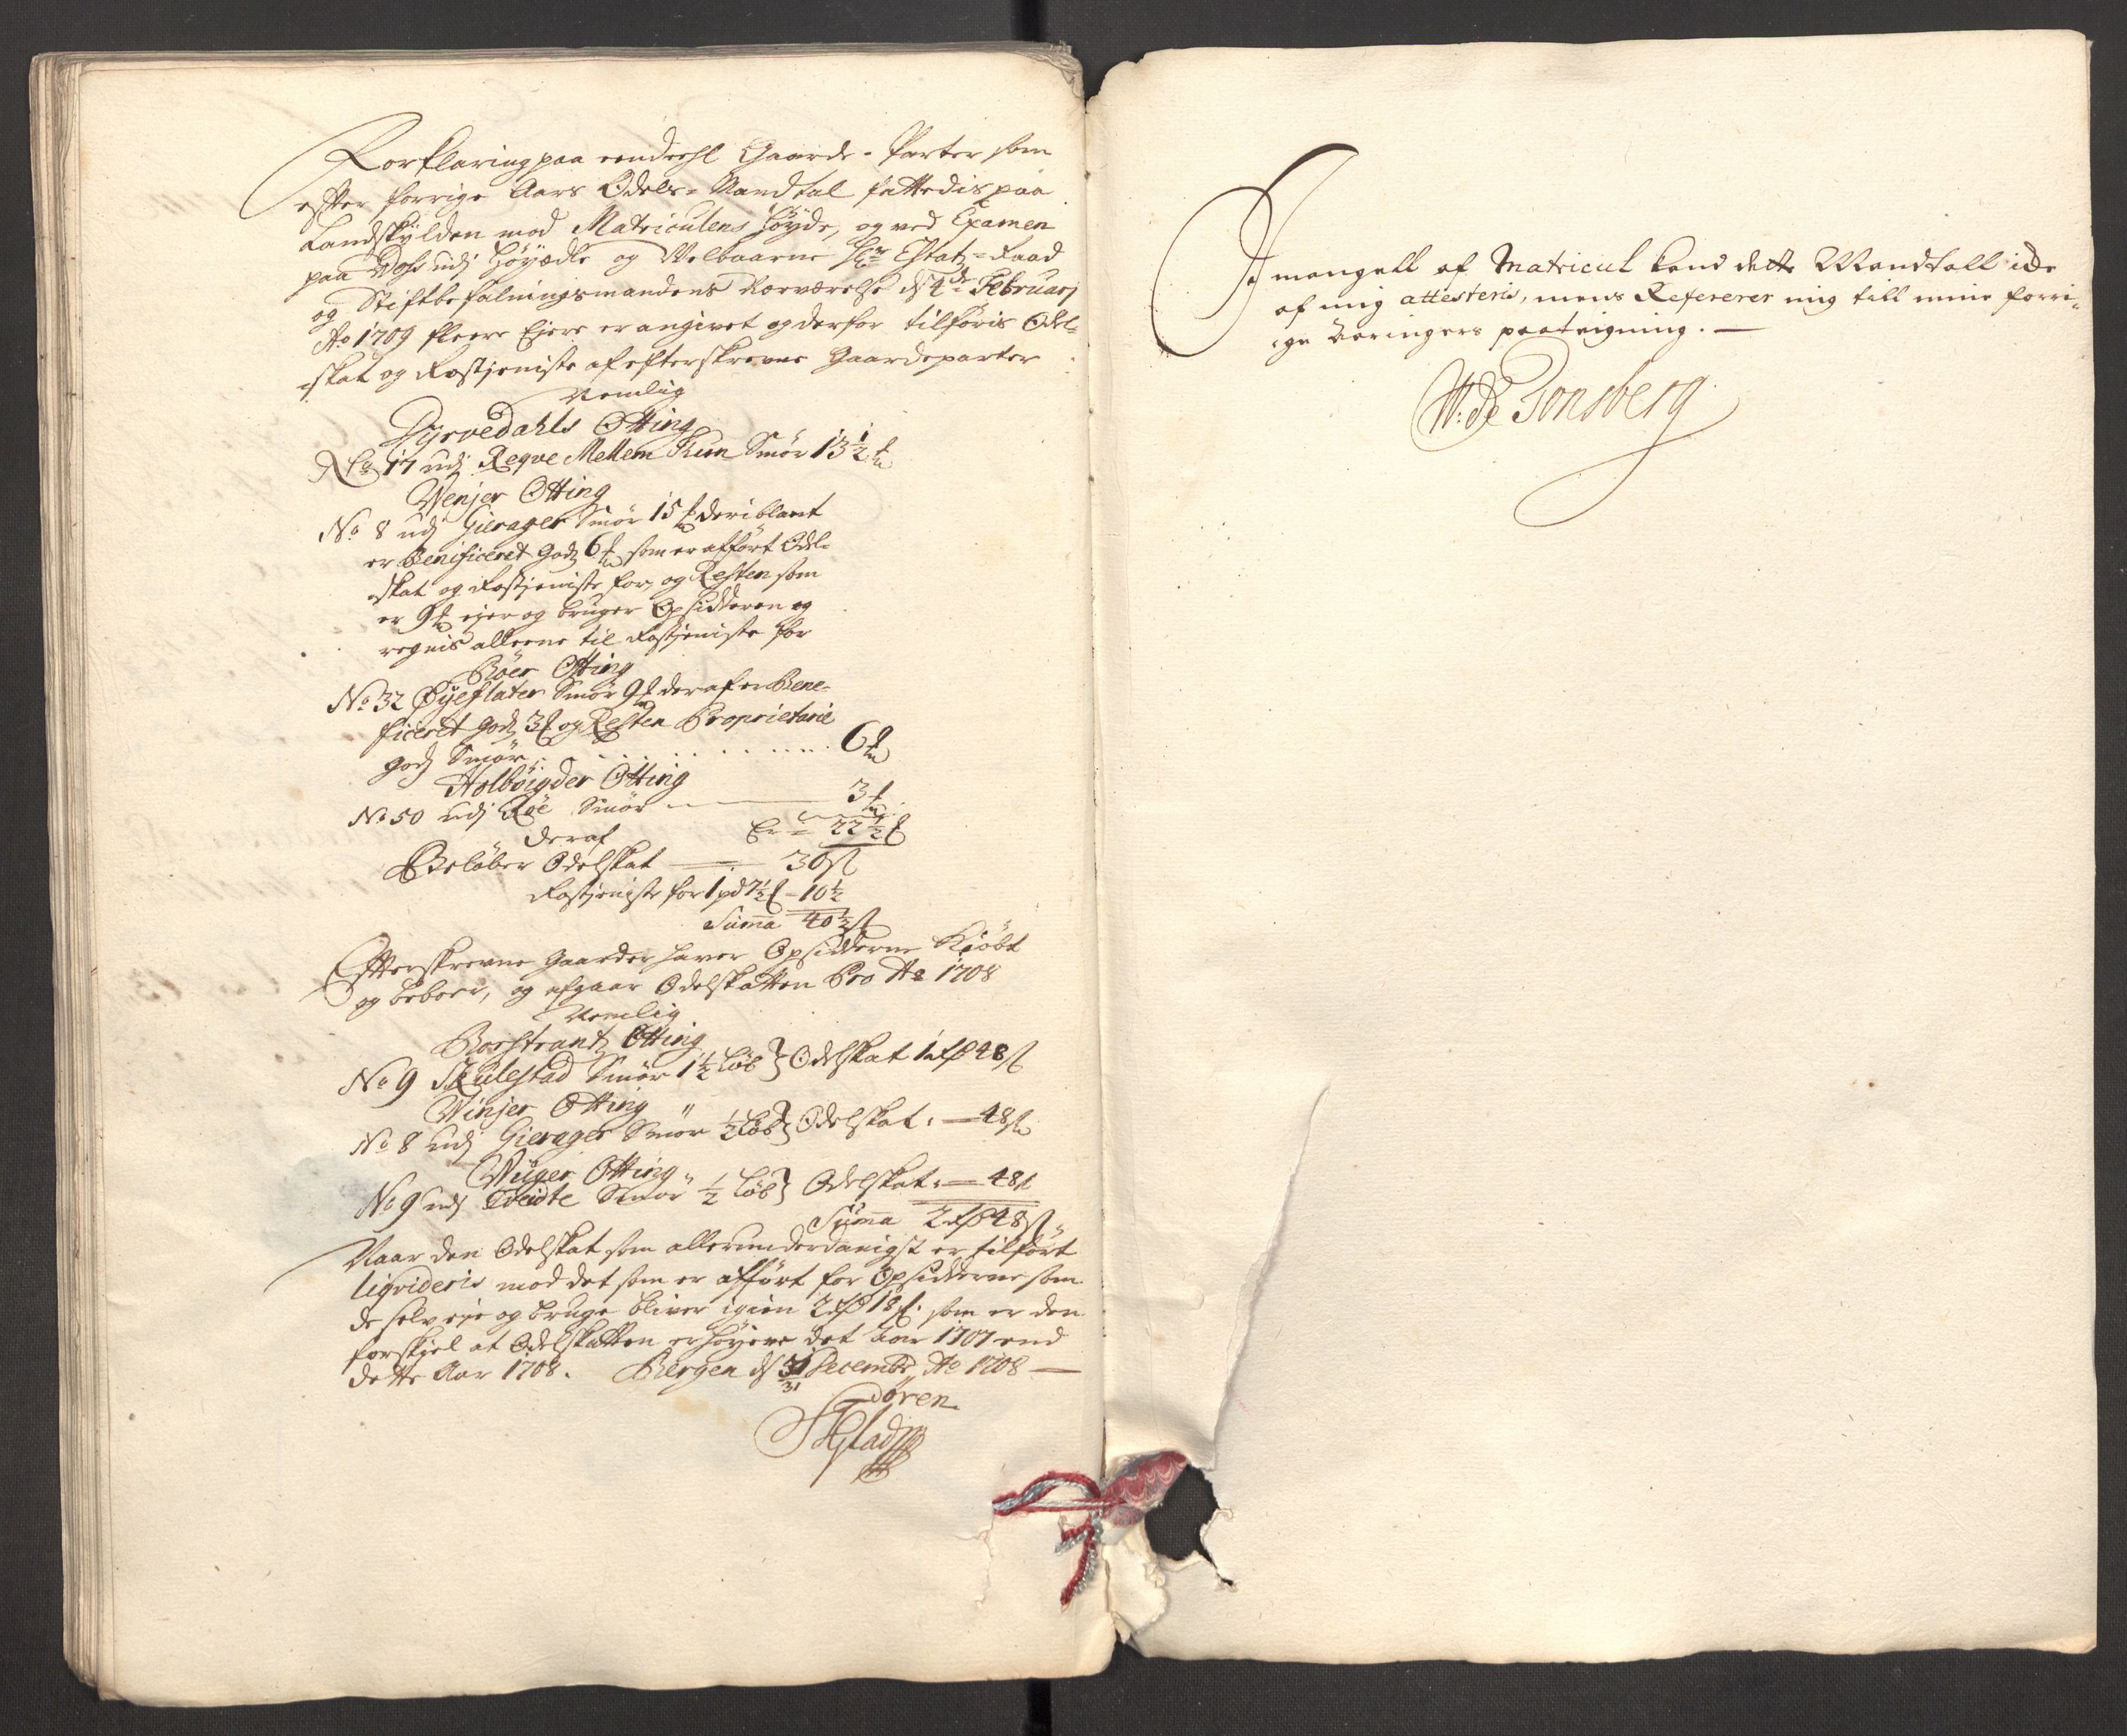 Forklaring paa eendeehl Gaarde-Parter som
efter forrige Aars Odels-Mandtal fattedis paa
Landskylden mod Matriculens Høyde, og ved Examen
paa Voss udj Høyædle og Velbaarne Hr Estatz-Raad
og Stiftbefalningsmandens Nærværelse d 4de Februarj
Ao 1709 fleere Ejere er angivet og derfor tilføris Odel-
skat og Rostjeniste af efterskrevne Gaardeparter
Nemlig
Dyrvedahls Otting
No 17 udj Reqve Mellem Rum Smør 13½
Venjer Otting
No 8 udj Gierager Smør 15 deriblant
er Benificeret Godz 6 som er afført Odel-
skat og Rostjeniste for, og Resten som
er 9 ejer og bruger Opsidderen og
regnis alleene til Rostjeniste for
Bøer Otting
No 32 Øyeflaten Smør 9 deraf er Bene-
ficeret Godz 3 og Resten Proprietarie
godz Smør 6
Holbøigder Otting
No 50 udj Røe Smør 3
Er 22½
deraf
Beløber Odelskat 30 s
Rostjeniste for 1 pd 7½ - 10½
Summa 40½ s
Efterskrevne Gaarder haver Opsidderne Kiøbt
og beboer, og afgaar Odelskatten Pro Ao 1708
Nemlig
Borstrandz Otting
No 9 Skulestad Smør 1½ løb Odelskat 1 rd 48 s
Vinjer Otting
No 8 udj Gierager Smør ½ løb Odelskat 48 s
Vuger Otting
No 9 udj Tvidte Smør ½ løb Odelskat 48 s
Summa 2 rd 48 s
Naar den Odelskat som allerunderdanigst er tilført
liqvideris mod det som er afført for Opsidderne som
de selv eje og bruge bliver igien 2 rd 18 s. som er den
forskjel at Odelskatten er høyere det Aar 1707 end
dette Aar 1708. Bergen d 31 Decembr Ao 1708

I mangell af Matricul kand dette Mandtall icke
af mig attesteris, mens Refererer mig till mine forri-
ge Aaringers paateigning.
W: De Tonsberg